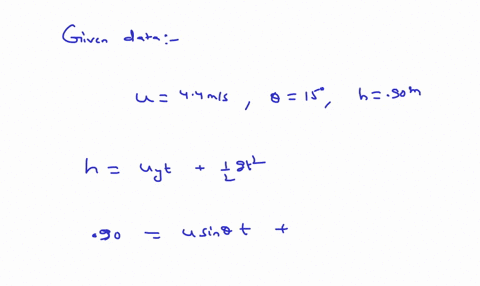 Given data:-
u = 4.4 m/s , θ = 15° , h = .90 m
h = uyt + 1/2 gt²
.90 = u sinθ t +